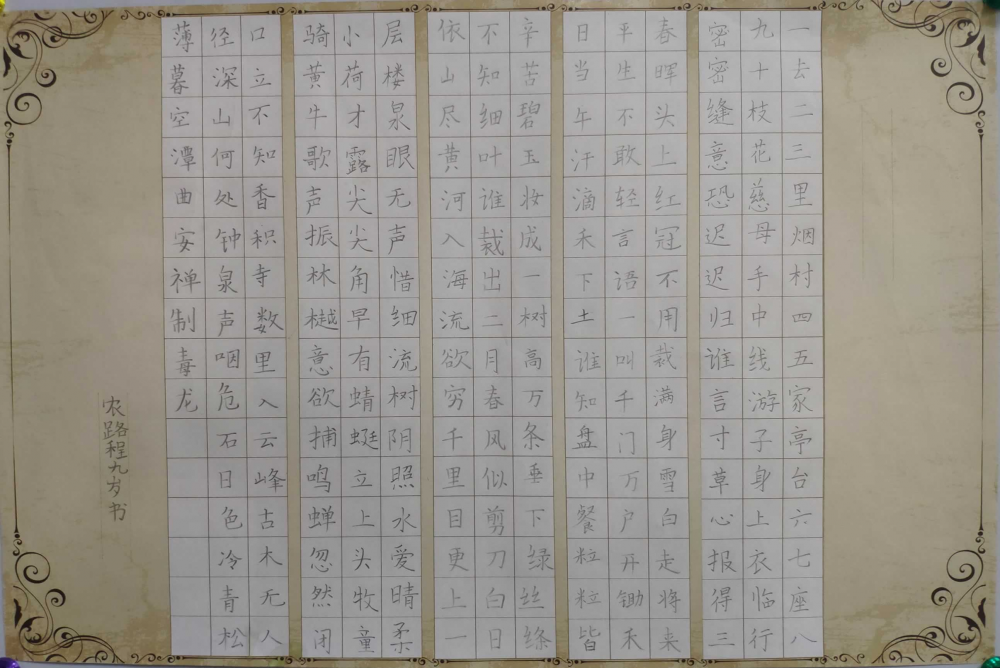 一去二三里烟村四五家亭台六七座八
九十枝花慈母手中线游子身上衣临行
密密缝意恐迟迟归谁言寸草心报得三
春晖头上红冠不用裁满身雪白走将来
平生不敢轻言语一叫千门万户开锄禾
日当午汗滴禾下土谁知盘中餐粒粒皆
辛苦碧玉妆成一树高万条垂下绿丝绦
不知细叶谁裁出二月春风似剪刀白日
依山尽黄河入海流欲穷千里目更上一
层楼泉眼无声惜细流树阴照水爱晴柔
小荷才露尖尖角早有蜻蜓立上头牧童
骑黄牛歌声振林樾意欲捕鸣蝉忽然闭
口立不知香积寺数里入云峰古木无人
径深山何处钟泉声咽危石日色冷青松
薄暮空潭曲安禅制毒龙
农路程九岁书